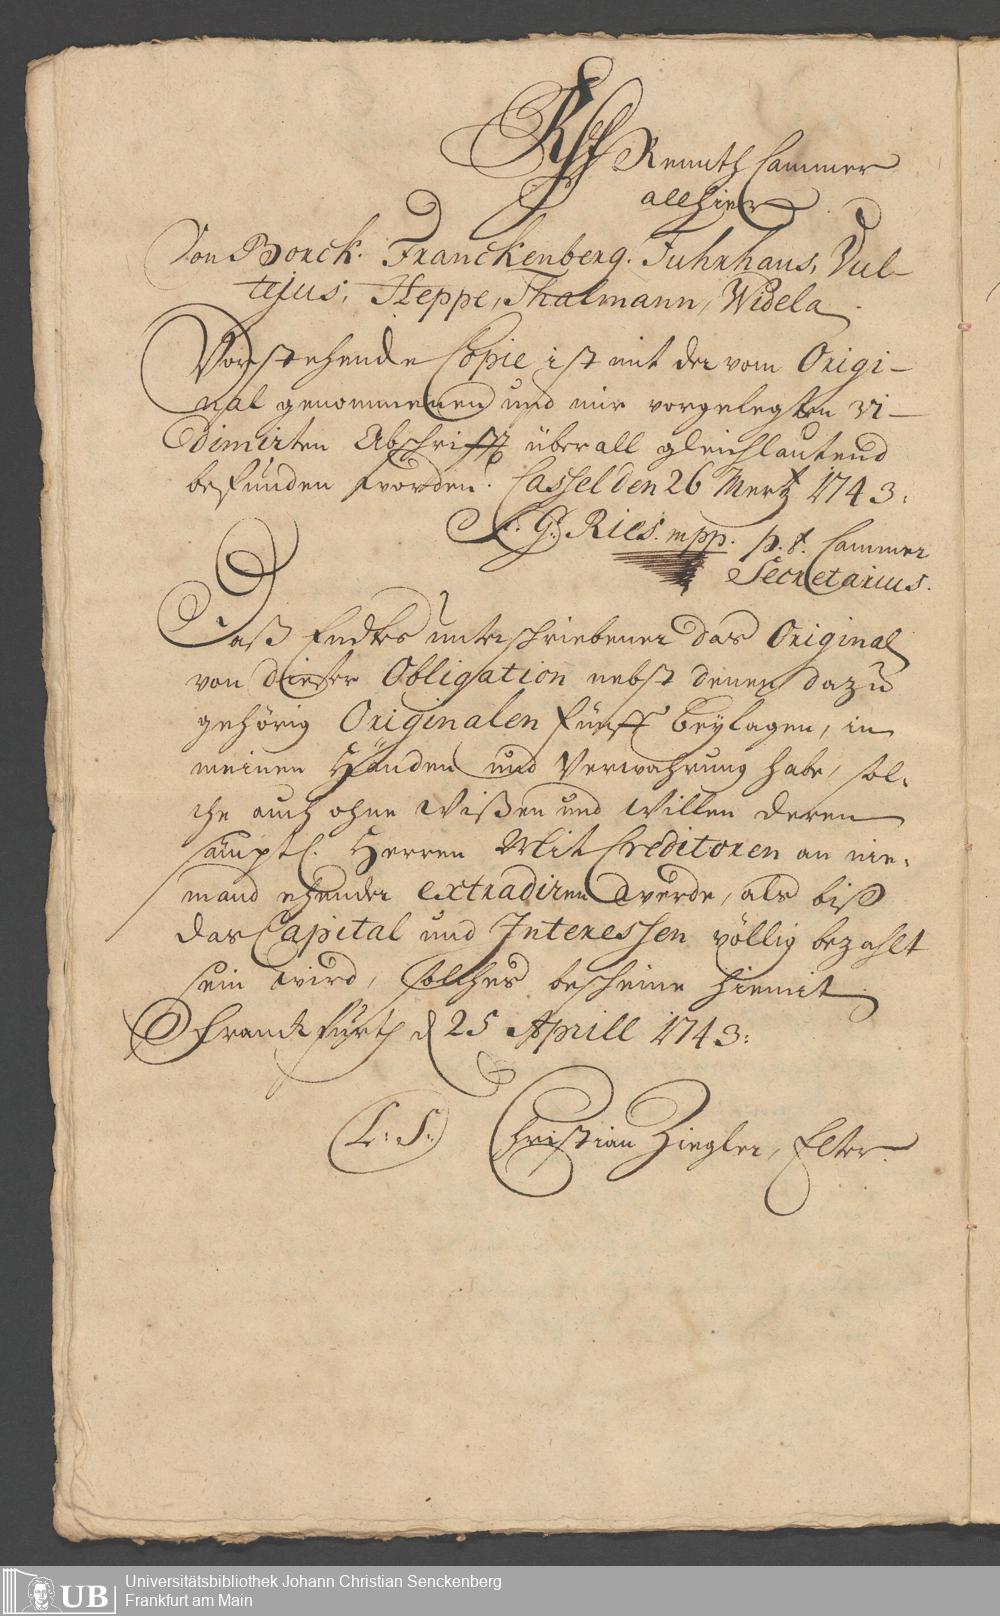 Rennth Cammer
allhier
Von Borck. Franckenberg. Fuhrhans, Vul-
tejus, Heppe, Thalmann, Widela
Vorstehende Copie ist mit der vom Origi-
nal genommenen und mir vorgelegten vi-
dimirten Abschrifft überall gleichlautend
befunden worden. Cassel den 26 Mertz 1743.
G. Ries. mpp. p. t. Cammer
Secretarius.
Daß Endes unterschriebener das Original
von dieser Obligation nebst denen dazu
gehörig Originalen fünff Beylagen, in
meinen Händen und Verwahrung habe, sol-
che auch ohne Wißen und Willen deren
sämptl. Herren Mit Creditoren an nie-
mand ehender extradiren werde, als biß
das Capital und Interessen völlig bezahlt
sein wird, solches bescheine hiemit
Franckfurth d 25 Aprill 1743:
L: S: Christian Ziegler, Elter.
UB Universitätsbibliothek Johann Christian Senckenberg
Frankfurt am Main